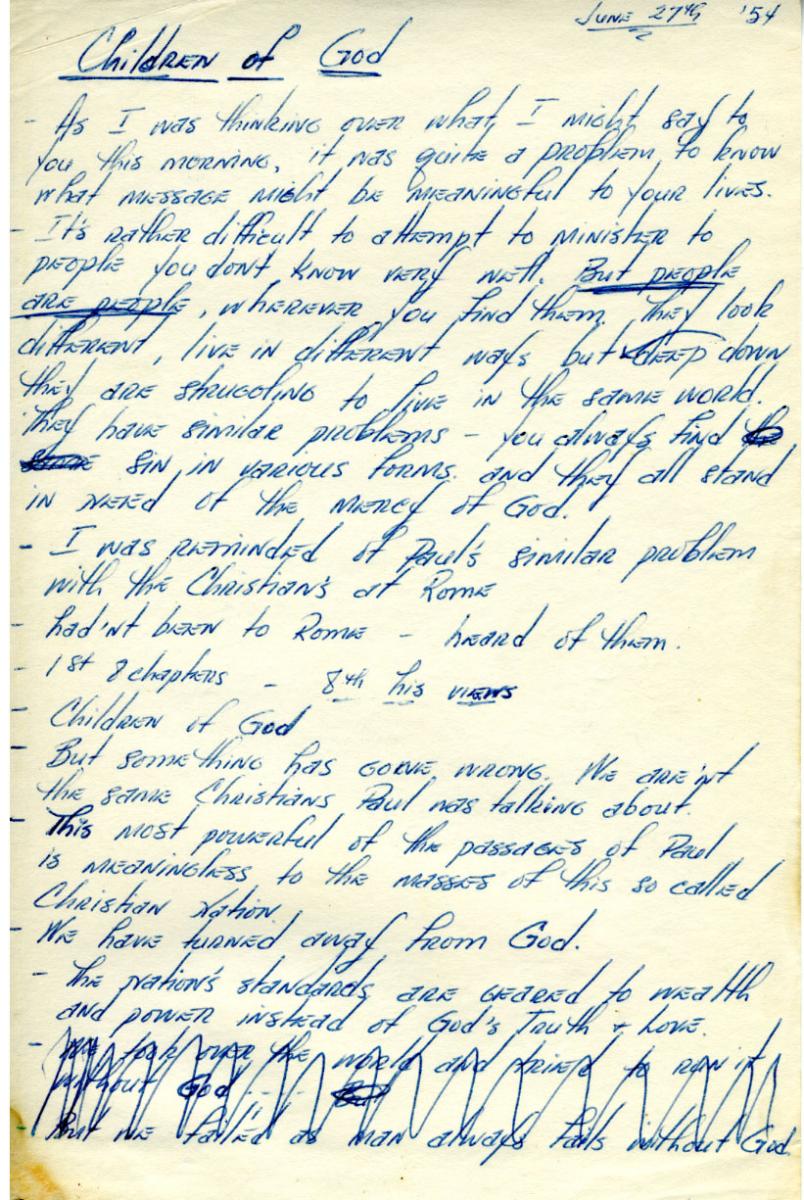 JUNE 27th '54
Children of God
- As I was thinking over what I might say to
you this morning, it was quite a problem to know
what message might be meaningful to your lives.
- It's rather difficult to attempt to minister to
people you dont know very well. But people
are people, wherever you find them. They look
different, live in different ways but deep down
they are struggling to live in the same world.
They have similar problems - you always find the
same sin in various forms. and they all stand
in need of the mercy of God.
- I was reminded of Paul's similar problem
with the Christian's at Rome
- had'nt been to Rome - heard of them.
- 1st 8 chapters - 8th his views
- Children of God
- But something has gone wrong. We are'nt
the same Christians Paul was talking about.
- This most powerful of the passages of Paul
is meaningless to the masses of this so called
Christian Nation.
- We have turned away from God.
- The Nation's standards are geared to wealth
and power instead of God's Truth + Love.
- We took over the world and tried to run it
without God....
But we failed as man always fails without God.